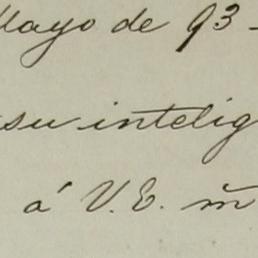 Mayo de 93-
su intelig
á V.E. m̃